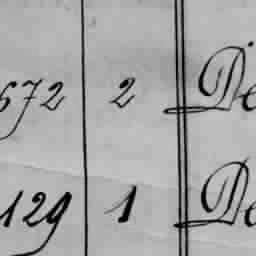 572 2 De
129 1 De